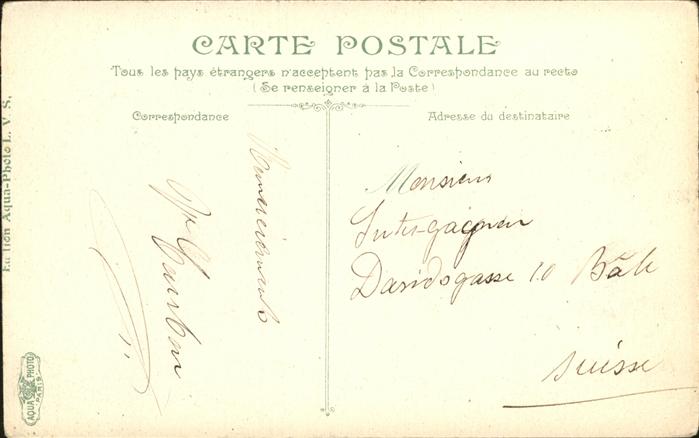 CARTE POSTALE
Tous les pays étrangers n'acceptent pas la Correspondance au recto
(Se renseigner à la Poste)
Correspondance
Adresse du destinataire
Remerciements
Monsieur
Davidsgasse 10 Bâle
Suisse
Edition Aqua-Photo L. V. S.
AQUA PHOTO
PARIS